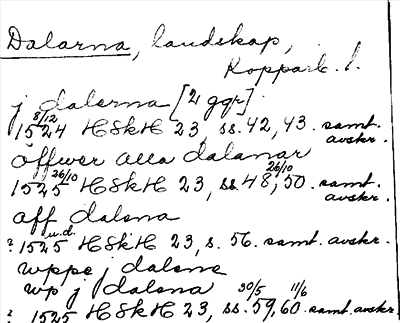 Dalarna, landskap,
Kopparb. l.
j dalerna [2 ggr]
8/12
1524 HSkH 23, ss. 42, 43. samt. avskr.
offwer alla dalanar
26/10 26/10
1525 HSkH 23, ss 48, 50. samt. avskr.
aff dalana
u.d.
? 1525 HSkH 23, s. 56. samt. avskr.
wppe j dalene
wp j dalana 30/5 11/6
? 1525 HSkH 23, ss. 59, 60. samt. avskr.